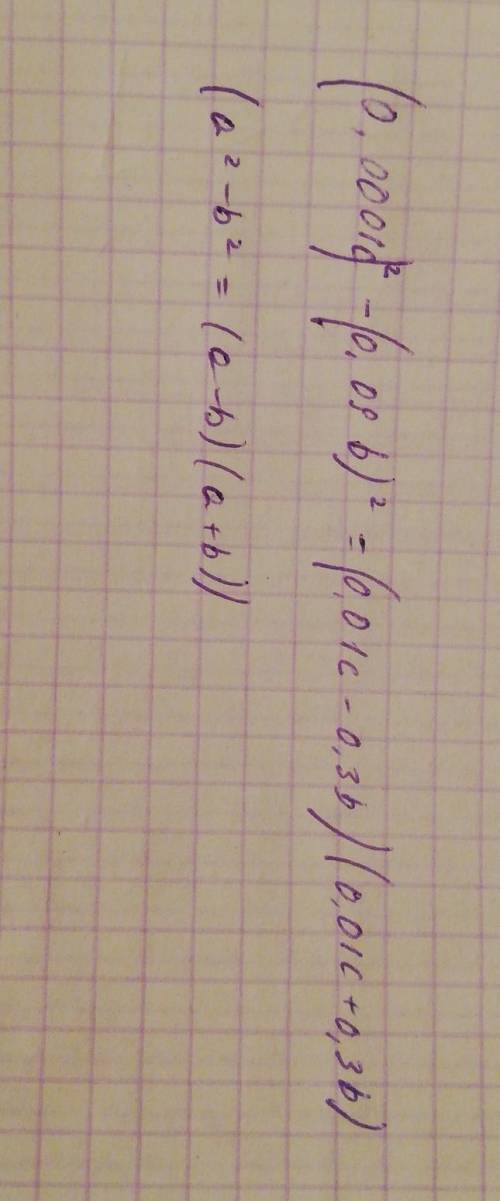 (0,0001c)² - (0,09 b)² = (0,01c - 0,3b)(0,01c + 0,3b)
(a² - b² = (a - b)(a + b))